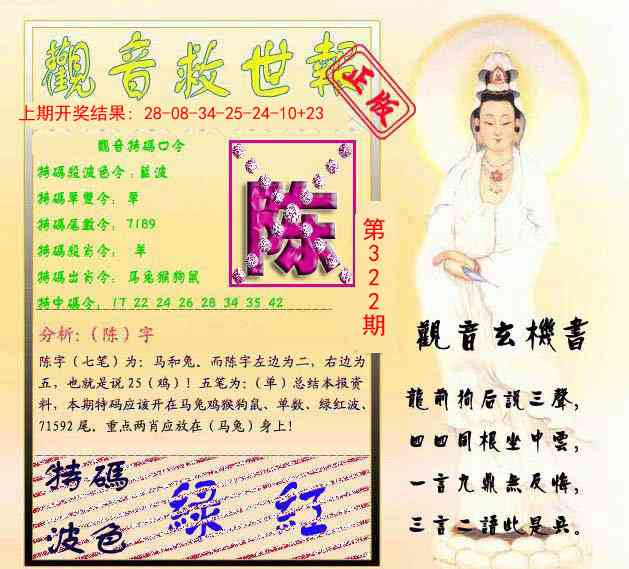 觀音救世報
正版
上期开奖结果：28-08-34-25-24-10+23
觀音特碼口令
特碼段波色令：藍波
特碼單雙令：單
特碼尾數令：7189
特碼段肖令：單
特碼出肖令：馬兔猴狗鼠
特中碼令：17 22 24 26 28 34 35 42
陈
第322期
分析：（陈）字
陈字（七笔）为：马和兔。而陈字左边为二，右边为
五，也就是说25（鸡）！五笔为：（单）总结本报资
料，本期特码应该开在马兔鸡猴狗鼠、单数、绿红波、
71592尾。重点两肖应放在（马兔）身上！
特碼
波色
綠 紅
觀音玄機書
龍前狗后説三聲，
四四同根坐中雲，
一言九鼎無反悔，
三言二語此是真。